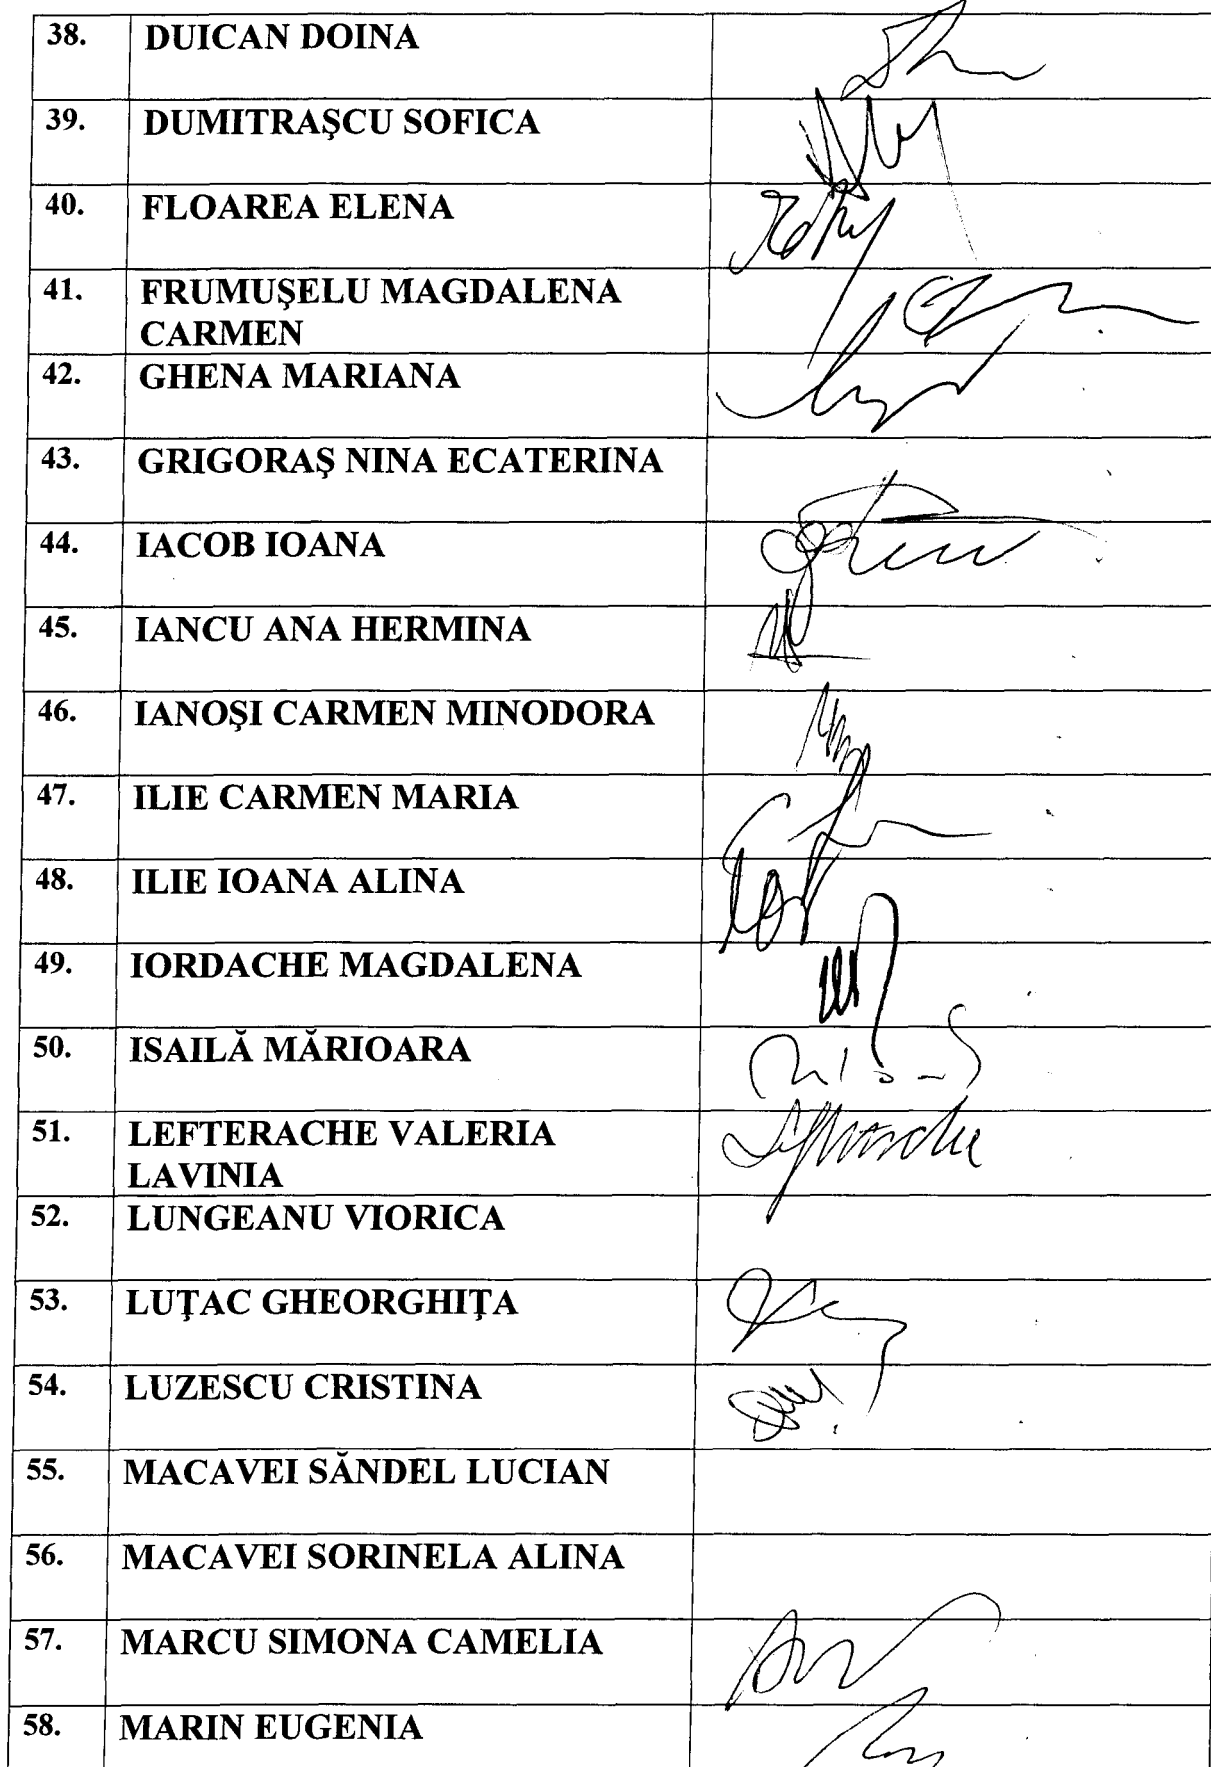 38. DUICAN DOINA
39. DUMITRAŞCU SOFICA
40. FLOAREA ELENA
41. FRUMUŞELU MAGDALENA
CARMEN
42. GHENA MARIANA
43. GRIGORAŞ NINA ECATERINA
44. IACOB IOANA
45. IANCU ANA HERMINA
46. IANOŞI CARMEN MINODORA
47. ILIE CARMEN MARIA
48. ILIE IOANA ALINA
49. IORDACHE MAGDALENA
50. ISAILĂ MĂRIOARA
51. LEFTERACHE VALERIA
LAVINIA
52. LUNGEANU VIORICA
53. LUŢAC GHEORGHIŢA
54. LUZESCU CRISTINA
55. MACAVEI SĂNDEL LUCIAN
56. MACAVEI SORINELA ALINA
57. MARCU SIMONA CAMELIA
58. MARIN EUGENIA